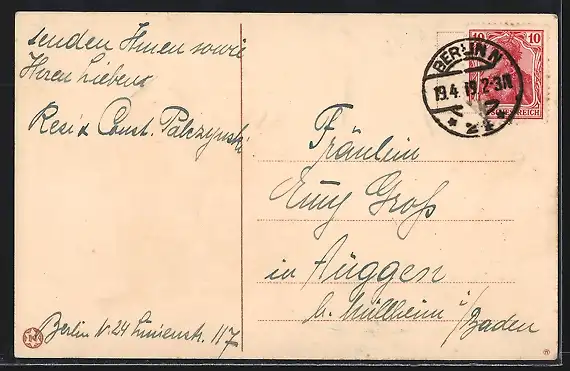 senden Ihnen sowie
Ihren Lieben
Resi & Const. Palczynski
Berlin N. 24 Linienstr. 117
10 10
BERLIN N
19.4.19. 2-3N
* 24 *
Fräulein
Emy Groß
in Auggen
b. Müllheim i/Baden